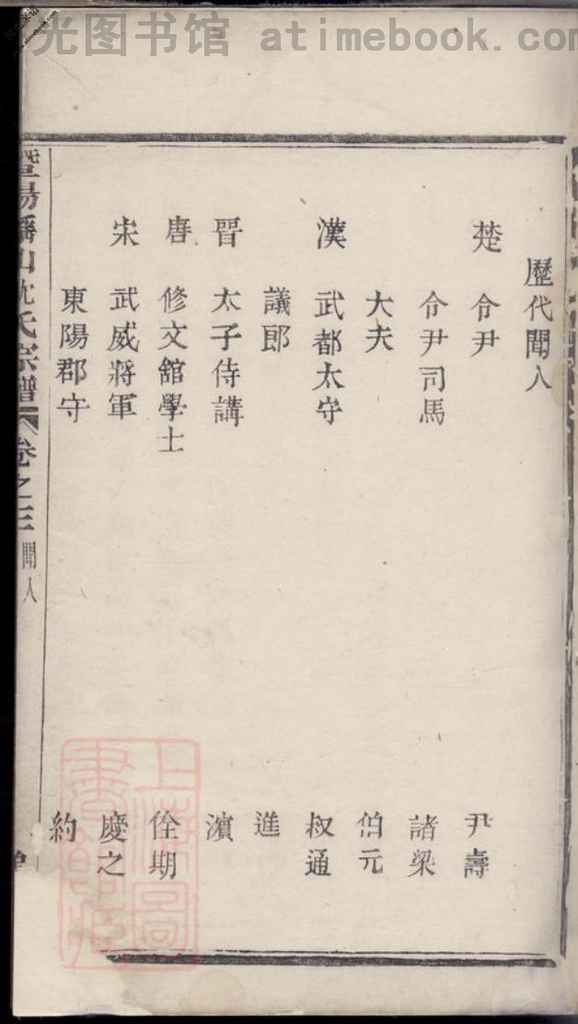 光图书馆 atimebook.com
歷代聞人
楚 令尹 尹壽
令尹司馬 諸梁
大夫 伯元
漢 武都太守 叔通
議郎 進
晉 太子侍講 濵
唐 修文舘學士 佺期
宋 武威將軍 慶之
東陽郡守 約
暨陽 山沈氏宗譜 卷之三 聞人
上海圖書館藏